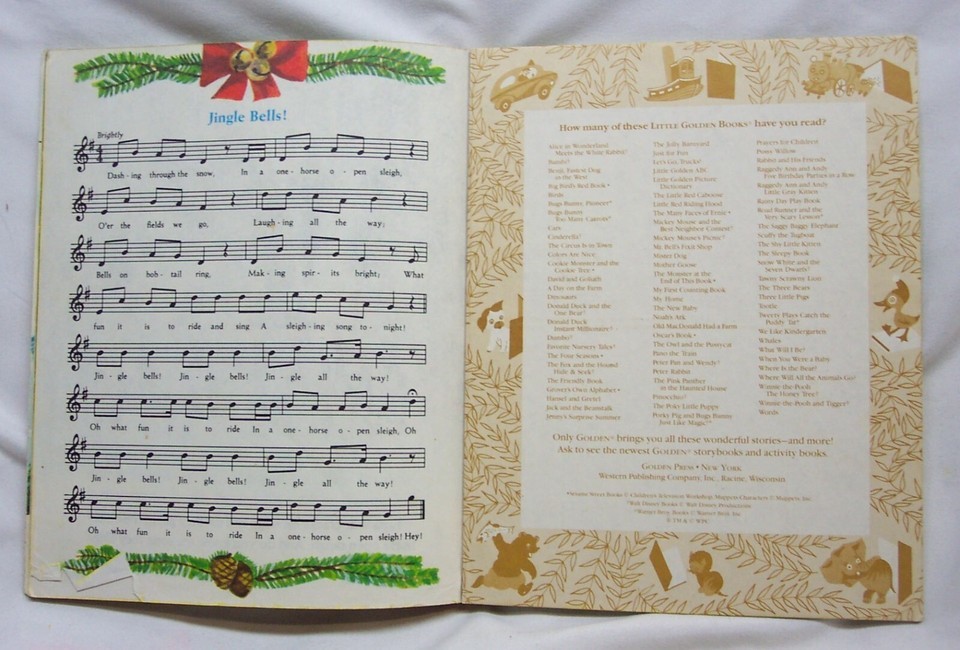 Jingle Bells!
Brightly
Dash - ing through the snow, In a one - horse o - pen sleigh,
O'er the fields we go, Laugh - ing all the way;
Bells on bob - tail ring, Mak - ing spir - its bright; What
fun it is to ride and sing A sleigh - ing song to - night!
Jin - gle bells! Jin - gle bells! Jin - gle all the way!
Oh what fun it is to ride In a one - horse o - pen sleigh, Oh
Jin - gle bells! Jin - gle bells! Jin - gle all the way!
Oh what fun it is to ride In a one - horse o - pen sleigh! Hey!
How many of these LITTLE GOLDEN BOOKS® have you read?
Alice in Wonderland
Meets the White Rabbit†
Bambi†
Benji, Fastest Dog
in the West
Big Bird's Red Book*
Birds
Bugs Bunny, Pioneer°
Bugs Bunny
Too Many Carrots°
Cars
Cinderella†
The Circus Is in Town
Colors Are Nice
Cookie Monster and the
Cookie Tree*
David and Goliath
A Day on the Farm
Dinosaurs
Donald Duck and the
One Bear†
Donald Duck
Instant Millionaire†
Dumbo†
Favorite Nursery Tales
The Four Seasons
The Fox and the Hound
Hide & Seek†
The Friendly Book
Grover's Own Alphabet*
Hansel and Gretel
Jack and the Beanstalk
Jenny's Surprise Summer
The Jolly Barnyard
Just for Fun
Let's Go, Trucks!
Little Golden ABC
Little Golden Picture
Dictionary
The Little Red Caboose
Little Red Riding Hood
The Many Faces of Ernie*
Mickey Mouse and the
Best-Neighbor Contest†
Mickey Mouse's Picnic†
Mr. Bell's Fixit Shop
Mister Dog
Mother Goose
The Monster at the
End of This Book*
My First Counting Book
My Home
The New Baby
Noah's Ark
Old MacDonald Had a Farm
Oscar's Book*
The Owl and the Pussycat
Pano the Train
Peter Pan and Wendy†
Peter Rabbit
The Pink Panther
in the Haunted House
Pinocchio†
The Poky Little Puppy
Porky Pig and Bugs Bunny
Just Like Magic!°
Prayers for Children
Pussy Willow
Rabbit and His Friends
Raggedy Ann and Andy
Five Birthday Parties in a Row
Raggedy Ann and Andy
Little Gray Kitten
Rainy Day Play Book
Road Runner and the
Very Scary Lesson°
The Saggy Baggy Elephant
Scuffy the Tugboat
The Shy Little Kitten
The Sleepy Book
Snow White and the
Seven Dwarfs†
Tawny Scrawny Lion
The Three Bears
Three Little Pigs
Tootle
Tweety Plays Catch the
Puddy Tat°
We Like Kindergarten
Whales
What Will I Be?
When You Were a Baby
Where Is the Bear?
Where Will All the Animals Go?
Winnie-the-Pooh
The Honey Tree†
Winnie-the-Pooh and Tigger†
Words
Only GOLDEN® brings you all these wonderful stories—and more!
Ask to see the newest GOLDEN® storybooks and activity books.
GOLDEN PRESS • NEW YORK
Western Publishing Company, Inc., Racine, Wisconsin
*Sesame Street Books © Children's Television Workshop. Muppets Characters © Muppets, Inc.
†Walt Disney Books © Walt Disney Productions
°Warner Bros. Books © Warner Bros. Inc.